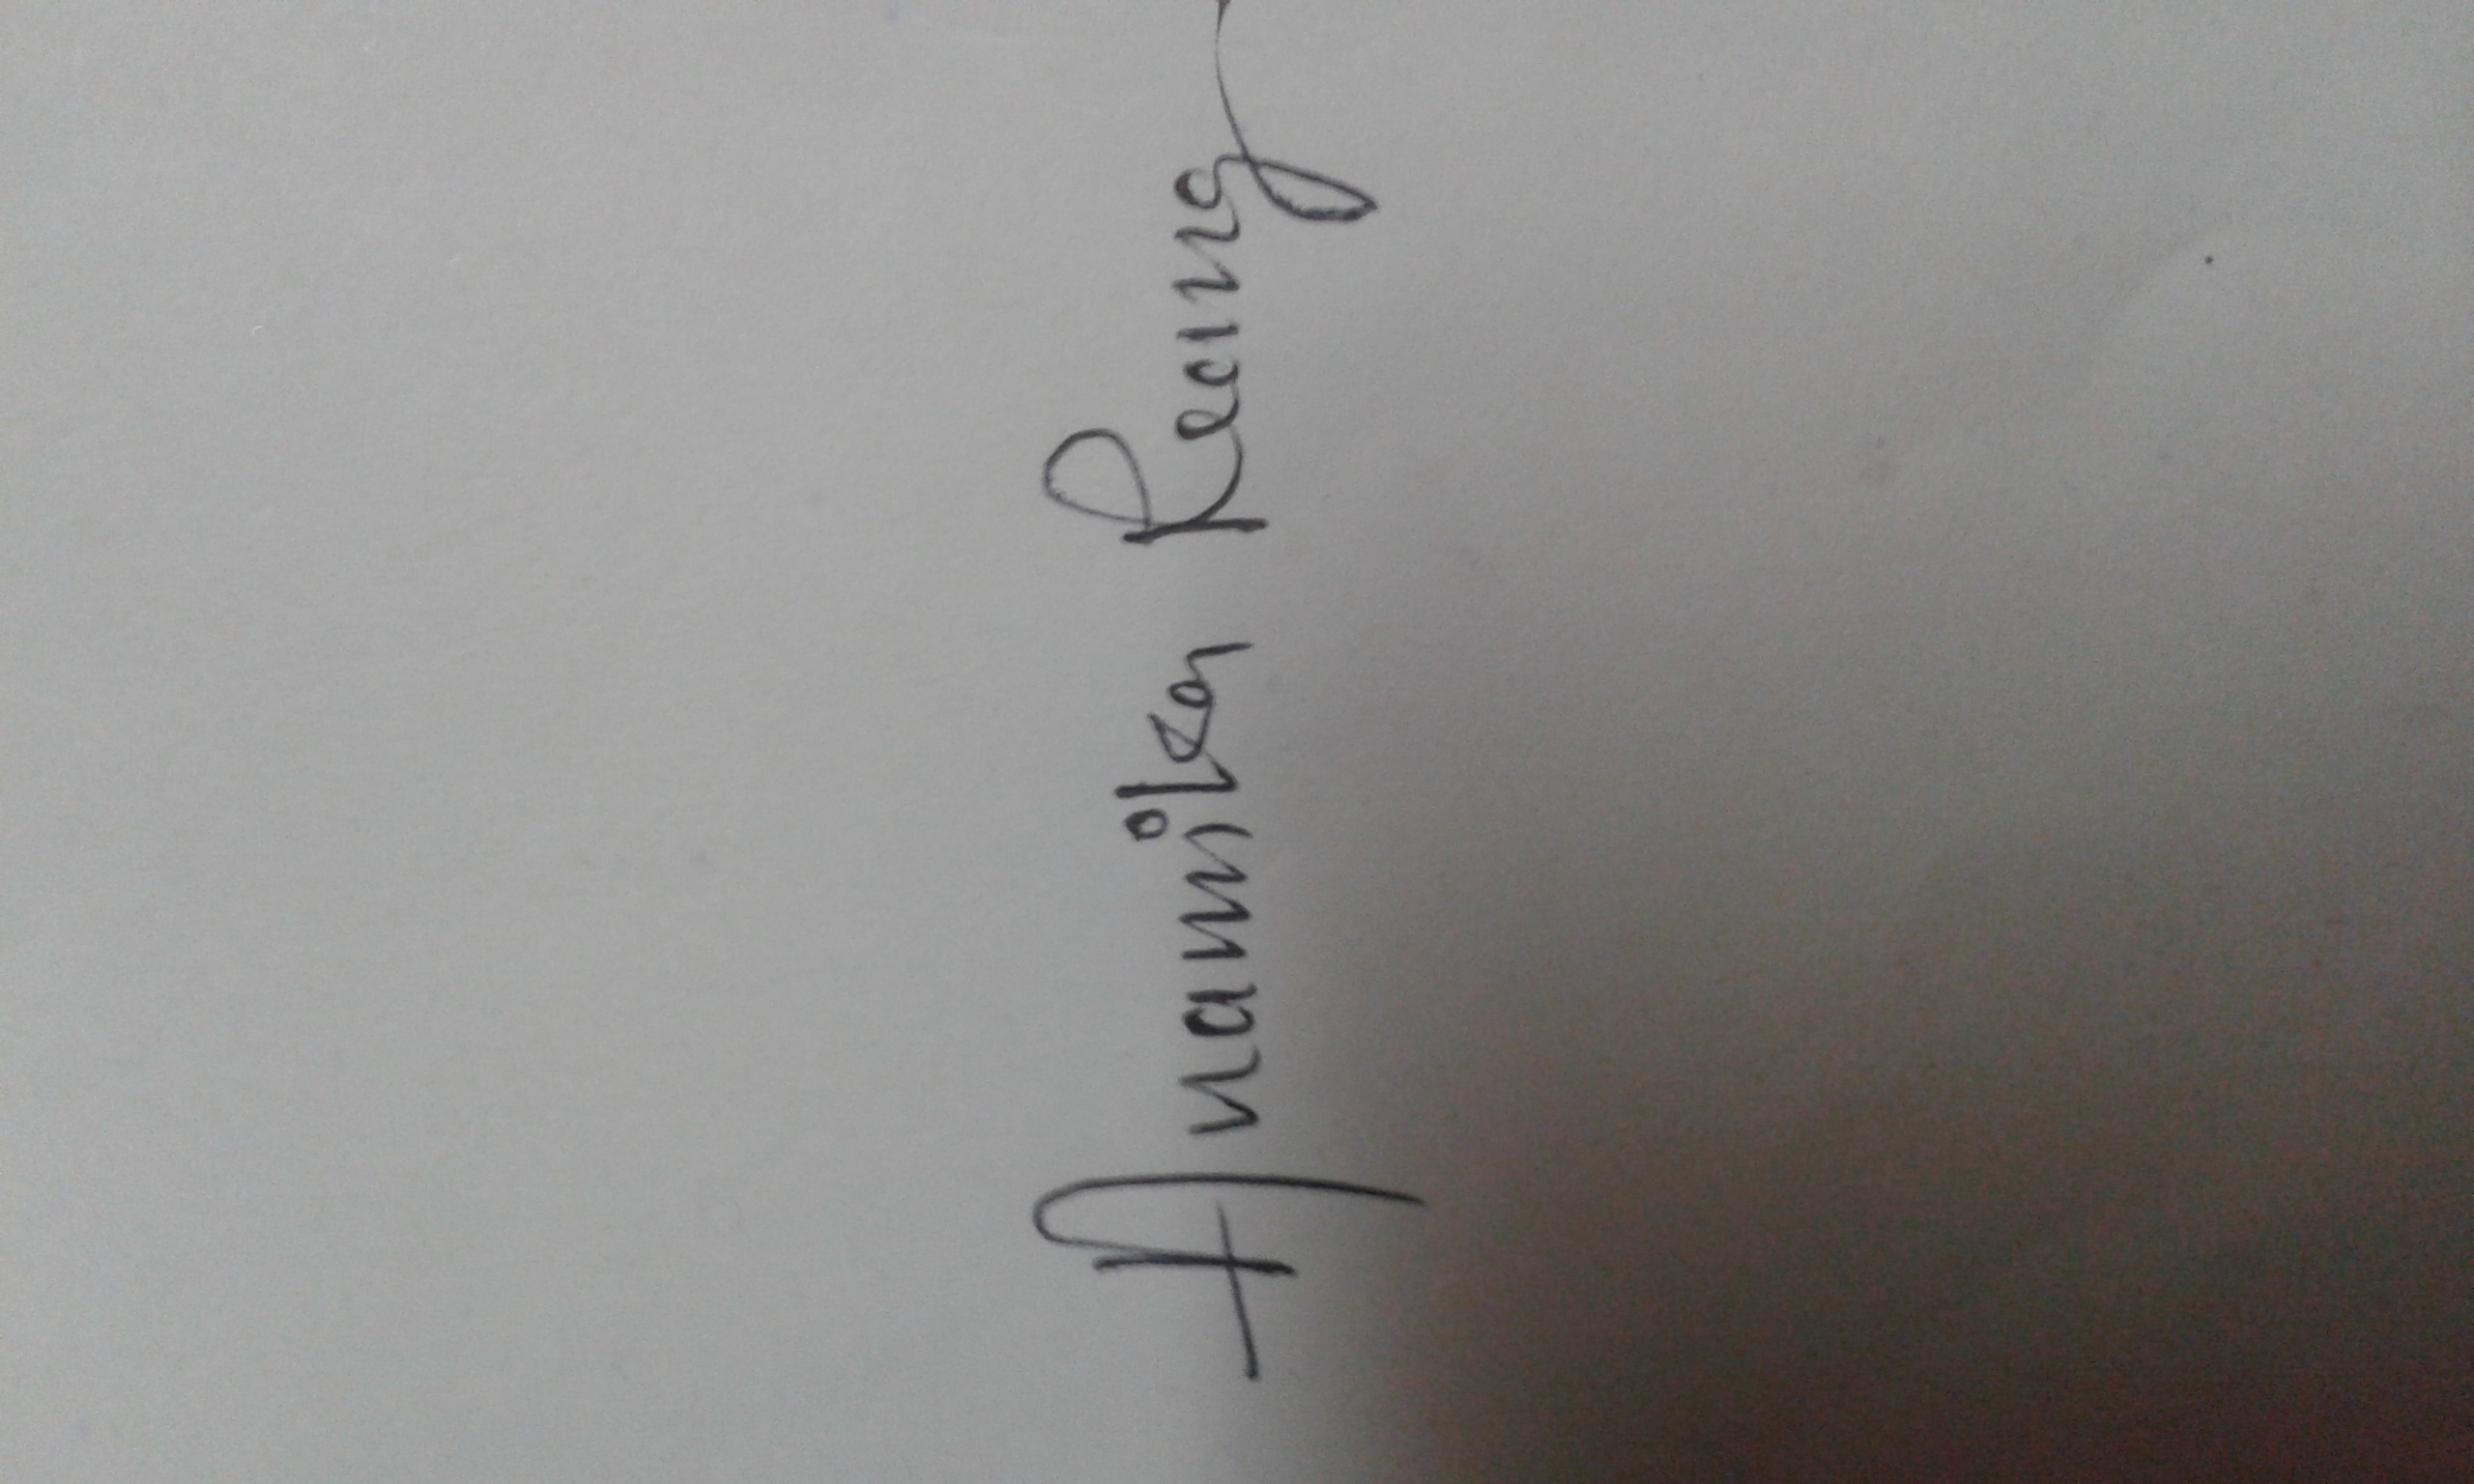 Anamika Reang